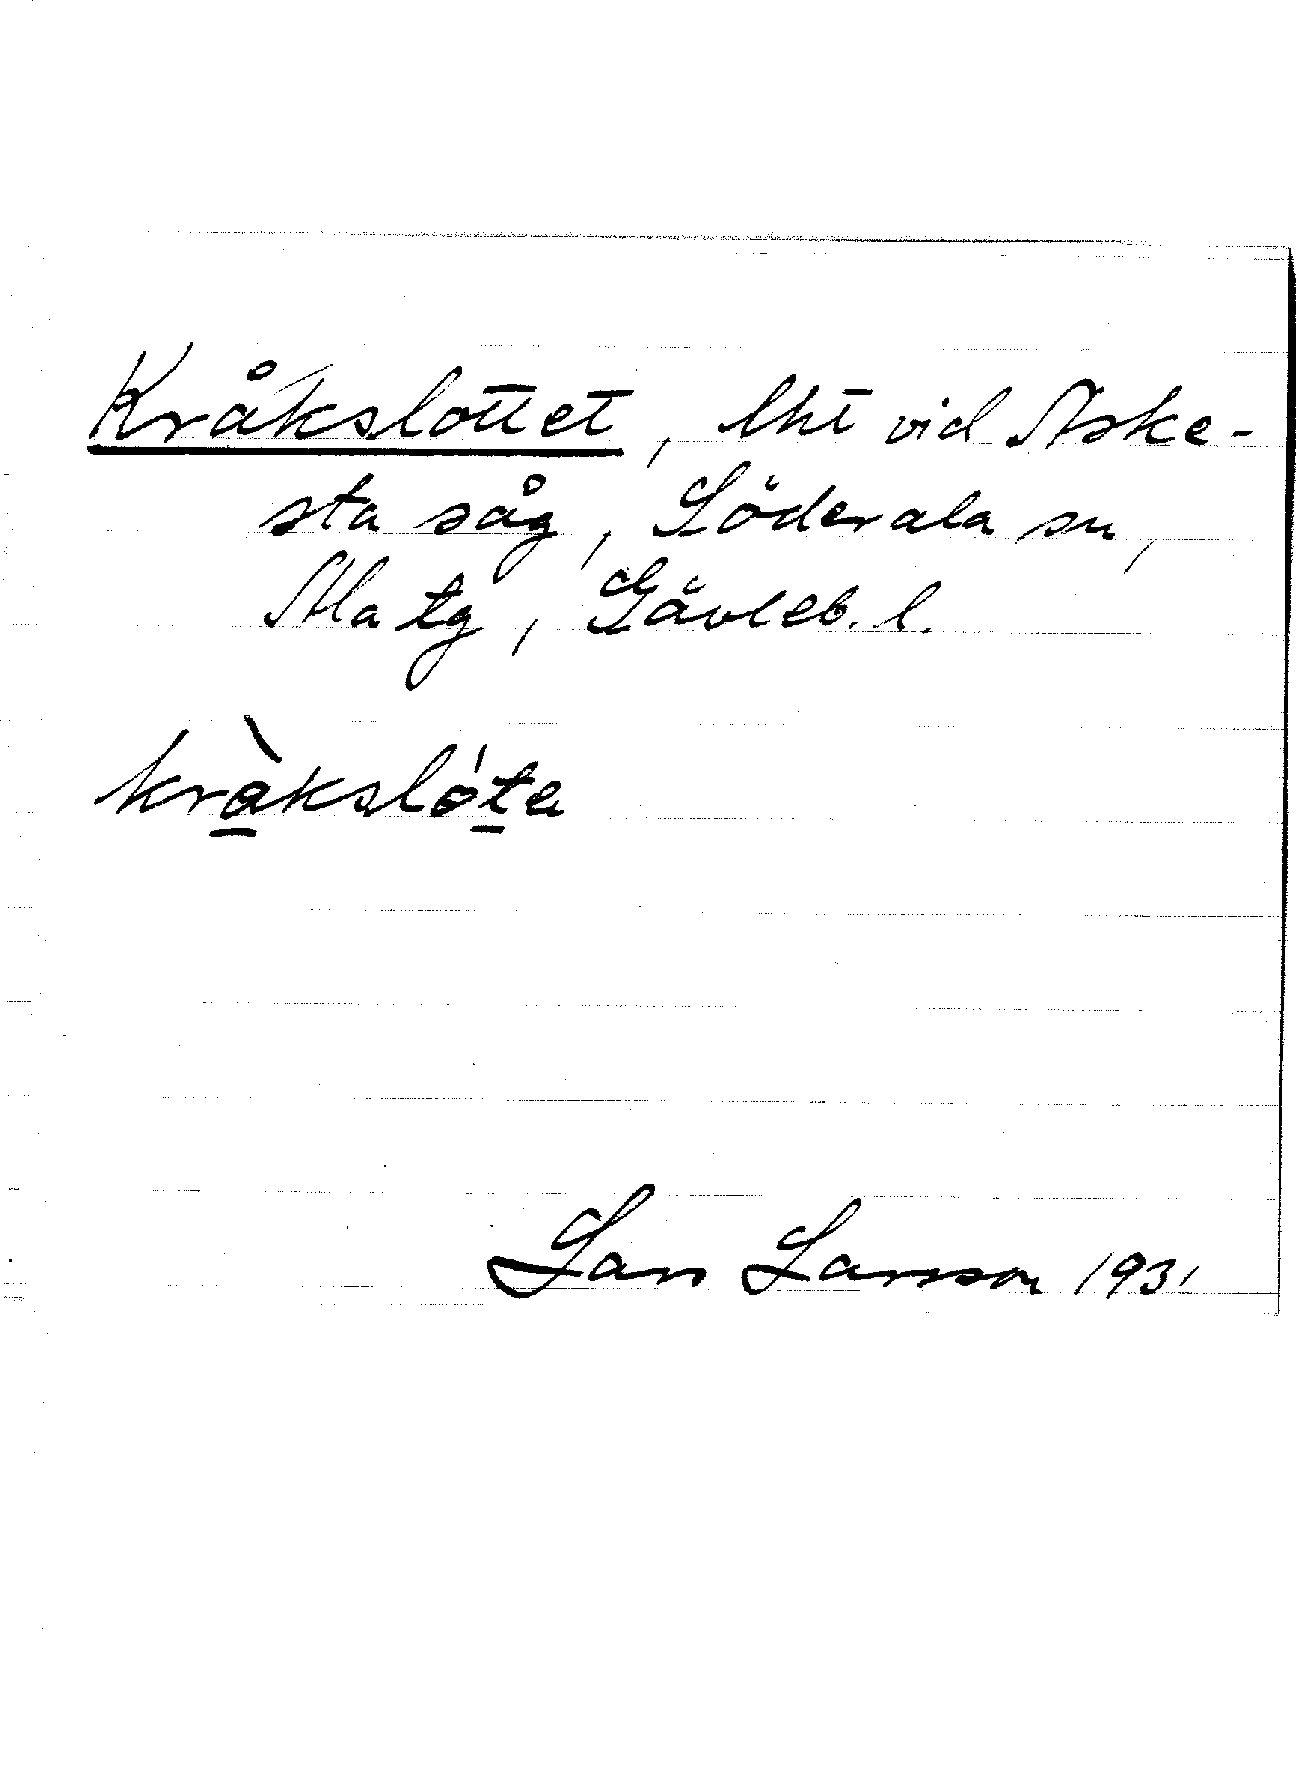 Kråkslottet, lht vid Aske-
sta såg, Söderala sn,
Ala tg, Gävleb. l.
kràkslóte
Lars Larsson 1931